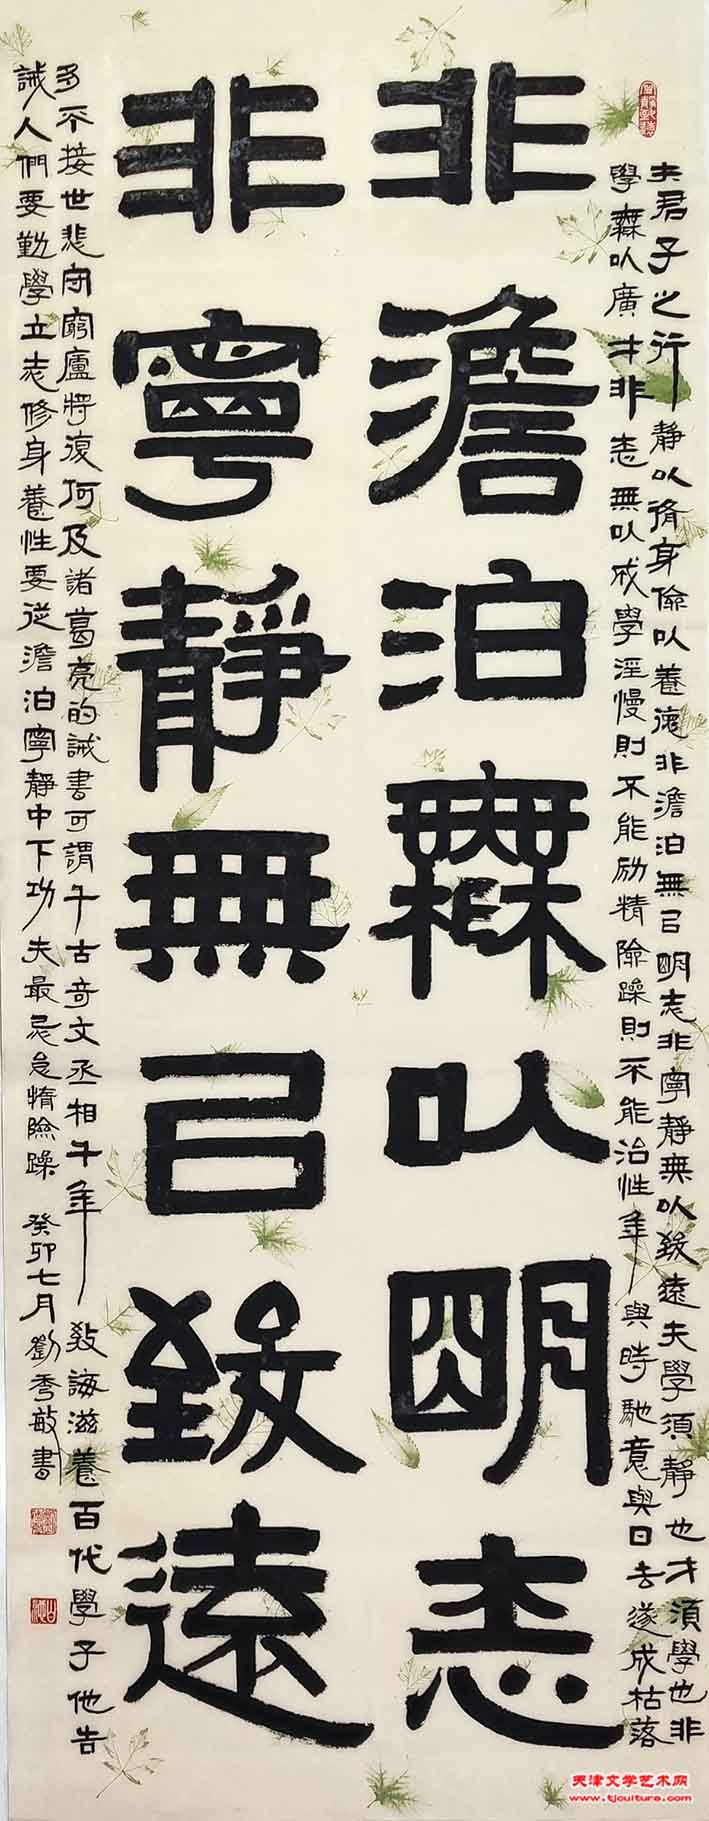 夫君子之行靜以脩身儉以養德非澹泊無㠯明志非寧靜無以致遠夫學須靜也才須學也非
學無以廣才非志無以成學淫慢則不能励精險躁則不能治性年與時馳意與日去遂成枯落
非澹泊無以明志
非寧靜無㠯致遠
多不接世悲守窮廬將復何及諸葛亮的誡書可謂千古奇文丞相千年教誨滋養百代學子他告
誡人們要勤學立志修身養性要從澹泊寧靜中下功夫最忌怠惰險躁 癸卯七月劉秀敏書
天津文学艺术网
www.tjculture.com